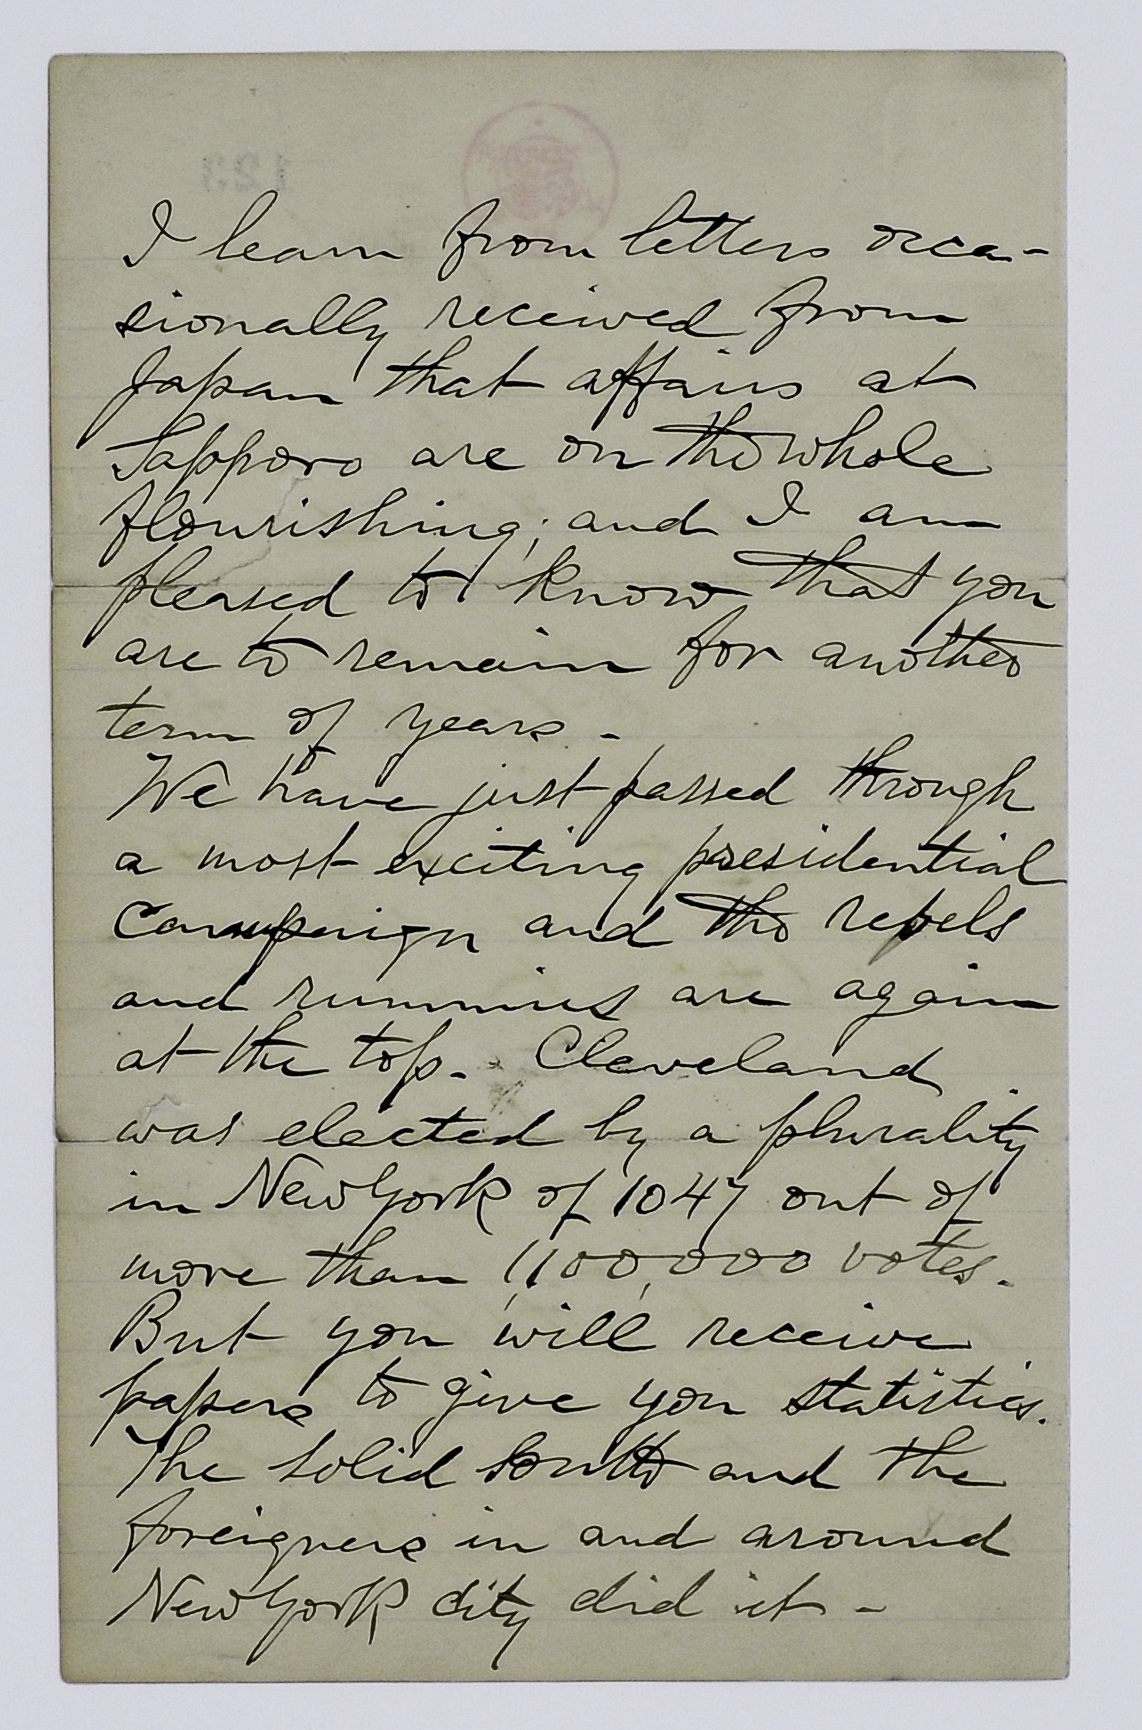 I learn from letters occa-
sionally received from
Japan that affairs at
Sapporo are on the whole
flourishing; and I am
pleased to know that you
are to remain for another
term of years.
We have just passed through
a most exciting presidential
campaign and the rebels
and rummies are again
at the top. Cleveland
was elected by a plurality
in New York of 1047 out of
more than 1,100,000 votes.
But you will receive
papers to give you statistics.
The solid South and the
foreigners in and around
New York city did it -